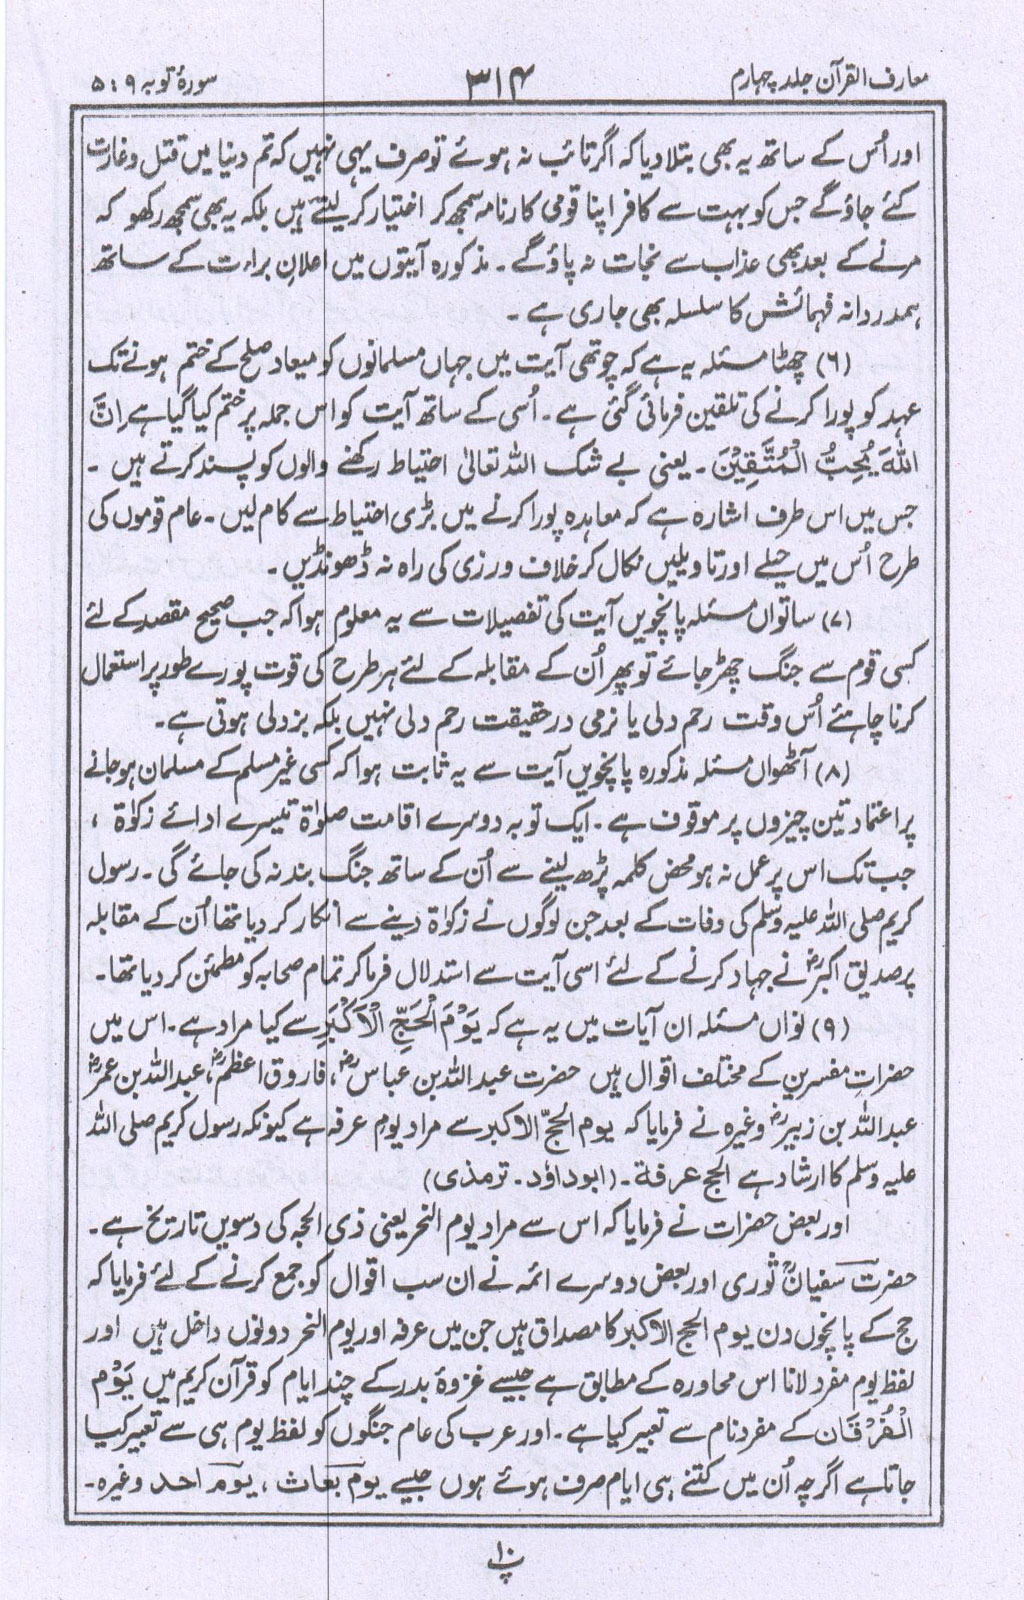 معارف القرآن جلد چہارم
۳۱۴
سورۂ توبہ ۹ : ۵
اور اُس کے ساتھ یہ بھی بتلا دیا کہ اگر تائب نہ ہوئے تو صرف یہی نہیں کہ تم دنیا میں قتل و غارت
کئے جاؤ گے جس کو بہت سے کافر اپنا قومی کارنامہ سمجھ کر اختیار کر لیتے ہیں بلکہ یہ بھی سمجھ رکھو کہ
مرنے کے بعد بھی عذاب سے نجات نہ پاؤ گے ۔ مذکورہ آیتوں میں اعلانِ براءت کے ساتھ
ہمدردانہ فہمائش کا سلسلہ بھی جاری ہے ۔
(۶) چھٹا مسئلہ یہ ہے کہ چوتھی آیت میں جہاں مسلمانوں کو میعاد صلح کے ختم ہونے تک
عہد کو پورا کرنے کی تلقین فرمائی گئی ہے ۔ اُسی کے ساتھ آیت کو اس جملہ پر ختم کیا گیا ہے اِنَّ
اللّٰہَ یُحِبُّ الْمُتَّقِیْنَ ۔ یعنی بے شک اللہ تعالیٰ احتیاط رکھنے والوں کو پسند کرتے ہیں ۔
جس میں اس طرف اشارہ ہے کہ معاہدہ پورا کرنے میں بڑی احتیاط سے کام لیں ۔ عام قوموں کی
طرح اُس میں حیلے اور تاویلیں نکال کر خلاف ورزی کی راہ نہ ڈھونڈیں ۔
(۷) ساتواں مسئلہ پانچویں آیت کی تفصیلات سے یہ معلوم ہوا کہ جب صحیح مقصد کے لئے
کسی قوم سے جنگ چھڑ جائے تو پھر اُن کے مقابلہ کے لئے ہر طرح کی قوت پورے طور پر استعمال
کرنا چاہئے اُس وقت رحم دلی یا نرمی درحقیقت رحم دلی نہیں بلکہ بزدلی ہوتی ہے ۔
(۸) آٹھواں مسئلہ مذکورہ پانچویں آیت سے یہ ثابت ہوا کہ کسی غیر مسلم کے مسلمان ہو جانے
پر اعتماد تین چیزوں پر موقوف ہے ۔ ایک توبہ دوسرے اقامت صلوٰۃ تیسرے ادائے زکوٰۃ ،
جب تک اس پر عمل نہ ہو محض کلمہ پڑھ لینے سے اُن کے ساتھ جنگ بند نہ کی جائے گی ۔ رسول
کریم صلی اللہ علیہ وسلم کی وفات کے بعد جن لوگوں نے زکوٰۃ دینے سے انکار کر دیا تھا اُن کے مقابلہ
پر صدیق اکبرؓ نے جہاد کرنے کے لئے اسی آیت سے استدلال فرما کر تمام صحابہ کو مطمئن کر دیا تھا ۔
(۹) نواں مسئلہ ان آیات میں یہ ہے کہ یَوْمَ الْحَجِّ الْاَکْبَرِ سے کیا مراد ہے ۔ اس میں
حضراتِ مفسرین کے مختلف اقوال ہیں حضرت عبد اللہ بن عباسؓ ، فاروق اعظمؓ ، عبد اللہ بن عمرؓ
عبد اللہ بن زبیرؓ وغیرہ نے فرمایا کہ یوم الحجّ الاکبر سے مراد یوم عرفہ ہے کیونکہ رسول کریم صلی اللہ
علیہ وسلم کا ارشاد ہے الحج عرفة ۔ (ابوداؤد ۔ ترمذی)
اور بعض حضرات نے فرمایا کہ اس سے مراد یوم النحر یعنی ذی الحجہ کی دسویں تاریخ ہے ۔
حضرت سفیان ثوریؒ اور بعض دوسرے ائمہ نے ان سب اقوال کو جمع کرنے کے لئے فرمایا کہ
حج کے پانچوں دن یوم الحج الاکبر کا مصداق ہیں جن میں عرفہ اور یوم النحر دونوں داخل ہیں اور
لفظ یوم مفرد لانا اس محاورہ کے مطابق ہے جیسے غزوۂ بدر کے چند ایام کو قرآن کریم میں یَوْمَ
الْفُرْقَان کے مفرد نام سے تعبیر کیا ہے ۔ اور عرب کی عام جنگوں کو لفظ یوم ہی سے تعبیر کیا
جاتا ہے اگرچہ اُن میں کتنے ہی ایام صرف ہوئے ہوں جیسے یوم بعاث ، یوم احد وغیرہ ۔
پ۱۰